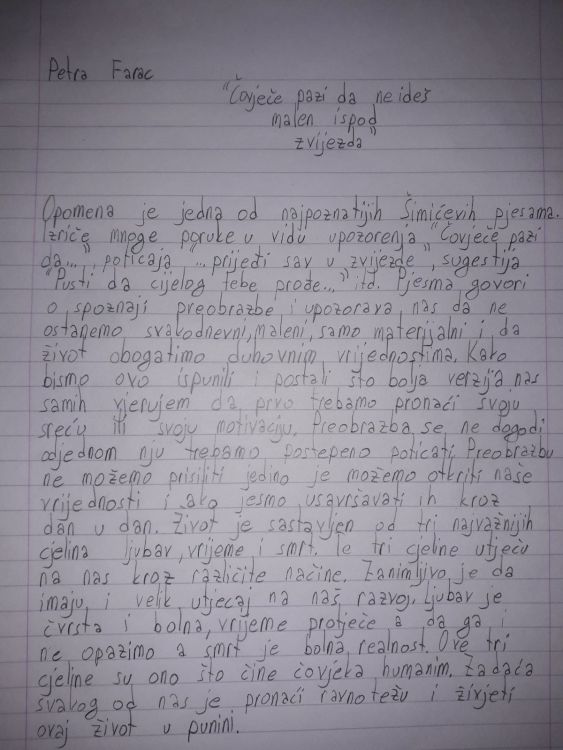 Petra Farac
"Čovječe pazi da ne ideš
malen ispod
zvijezda"
Opomena je jedna od najpoznatijih Šimićevih pjesama.
Izriče mnoge poruke u vidu upozorenja "Čovječe pazi
da...", poticaja "...prijeđi sav u zvijezde", sugestija
"Pusti da cijelog tebe prođe..." itd. Pjesma govori
o spoznaji preobrazbe i upozorava nas da ne
ostanemo svakodnevni, maleni, samo materijalni i da
život obogatimo duhovnim vrijednostima. Kako
bismo ovo ispunili i postali što bolja verzija nas
samih vjerujem da prvo trebamo pronaći svoju
sreću ili svoju motivaciju. Preobrazba se ne dogodi
odjednom nju trebamo postepeno poticati. Preobrazbu
ne možemo prisiliti jedino je možemo otkriti naše
vrijednosti i ako jesmo, usavršavati ih kroz
dan u dan. Život je sastavljen od tri najvažnijih
cjelina ljubav, vrijeme i smrt. Te tri cjeline utječu
na nas kroz različite načine. Zanimljivo je da
imaju i velik utjecaj na naš razvoj. Ljubav je
čvrsta i bolna, vrijeme protječe a da ga i
ne opazimo a smrt je bolna realnost. Ove tri
cjeline su ono što čine čovjeka humanim. Zadaća
svakog od nas je pronaći ravnotežu i živjeti
ovaj život u punini.